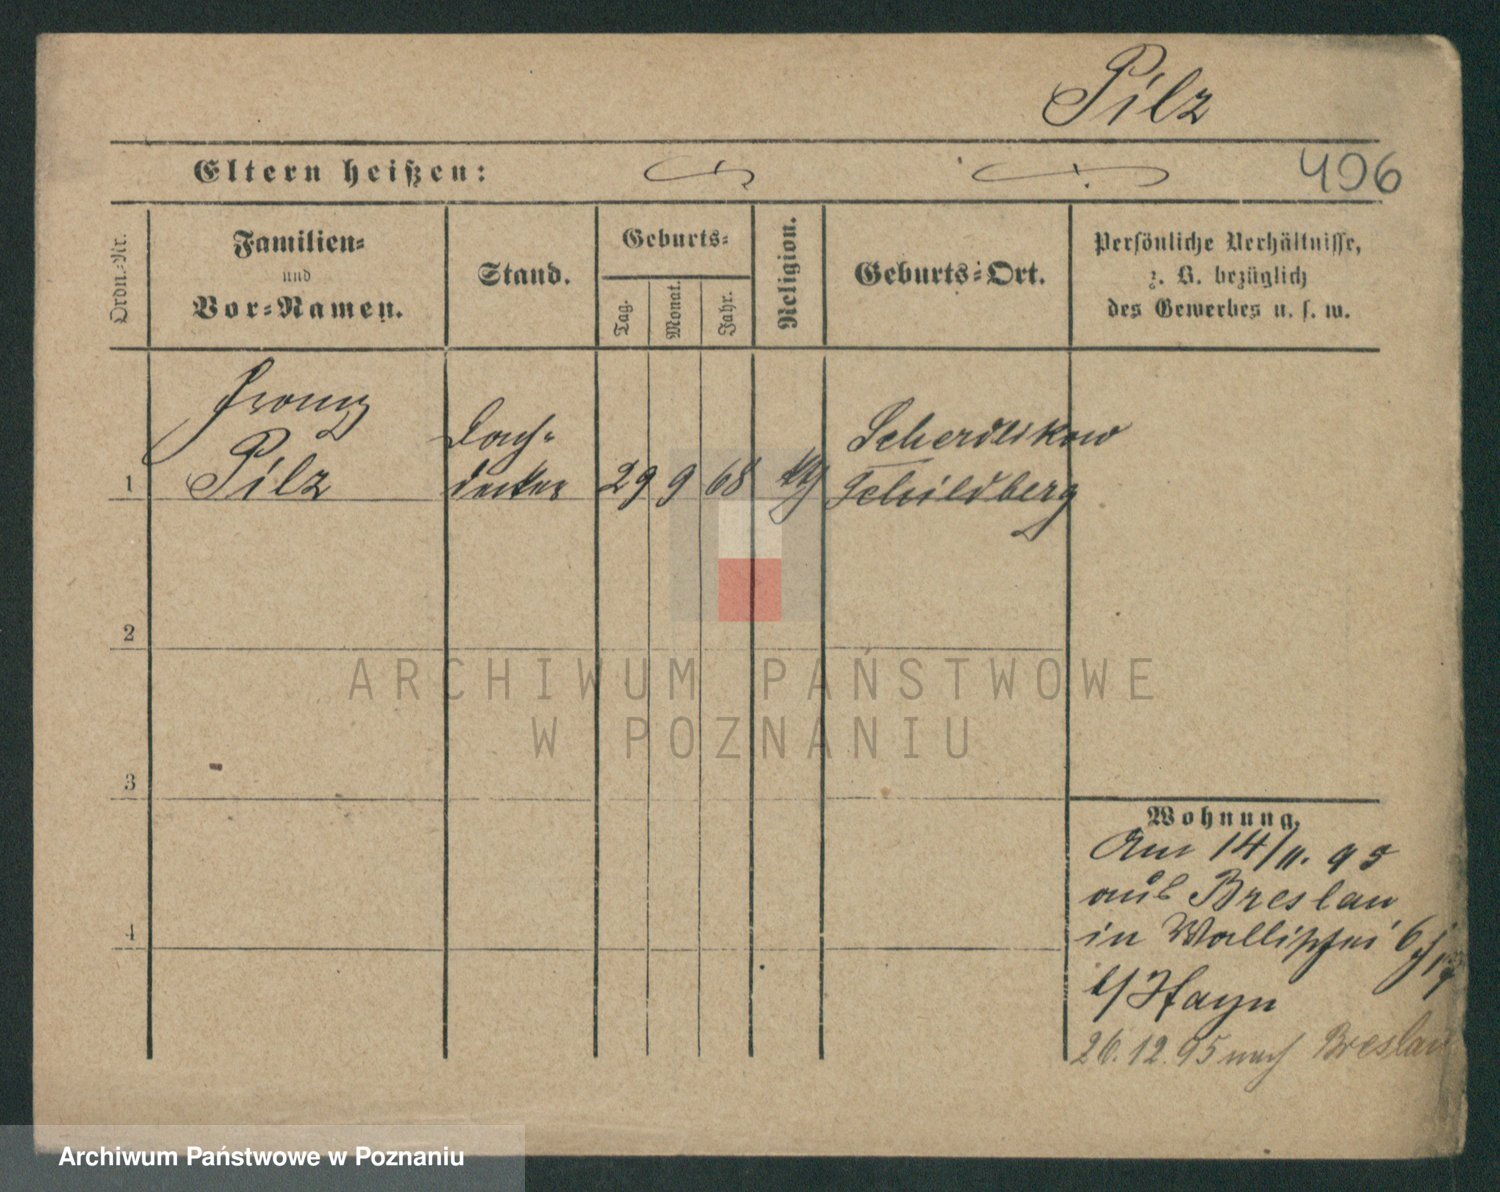 Pilz
Eltern heißen:
496
Ordn.-Nr.
Familien-
und
Vor-Namen.
Stand.
Geburts-
Tag.
Monat.
Jahr.
Religion.
Geburts-Ort.
Persönliche Verhältnisse,
z. B. bezüglich
des Gewerbes u. s. w.
Franz
Pilz
Dach-
decker
1
29
9
68
Schildberg
2
3
4
Wohnung.
Am 14/11. 95
aus Breslau
in Wallischei 6
b/ Hayn
26.12.95 nach Breslau
ARCHIWUM PAŃSTWOWE
W POZNANIU
Archiwum Państwowe w Poznaniu